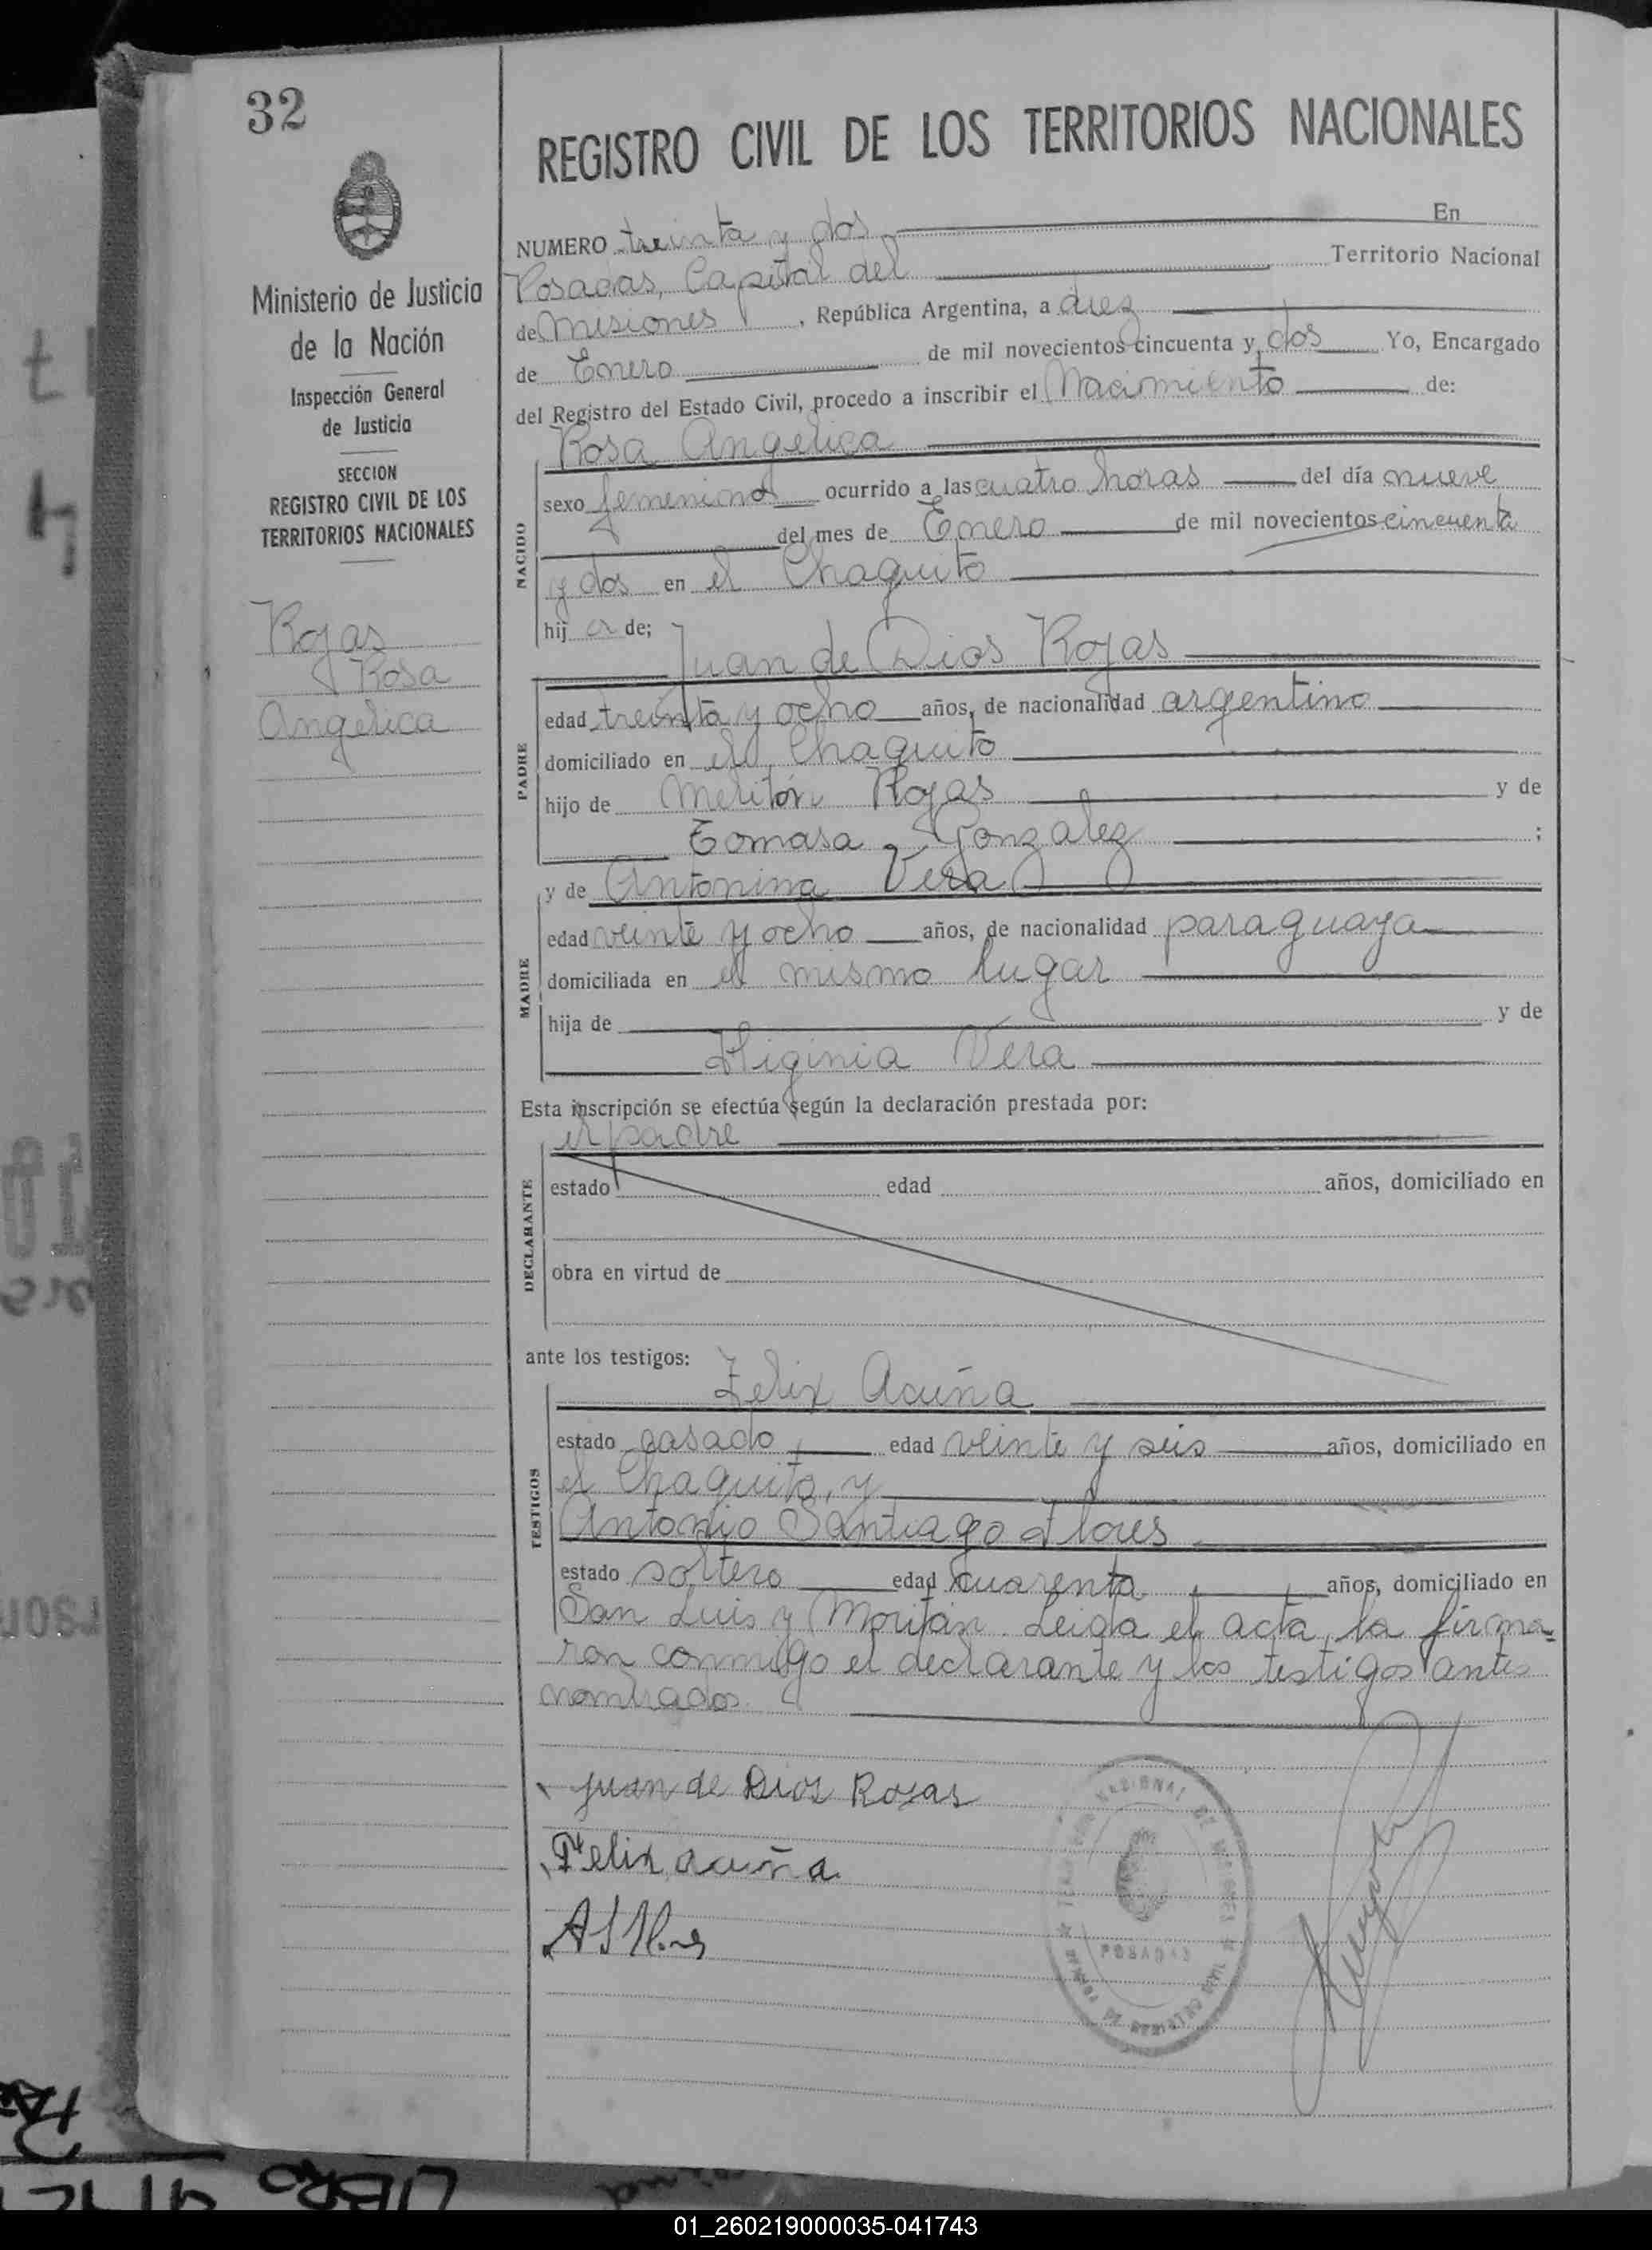 32
Ministerio de Justicia
de la Nación
Inspección General
de Justicia
SECCION
REGISTRO CIVIL DE LOS
TERRITORIOS NACIONALES
Rojas
Rosa
Angelica
REGISTRO CIVIL DE LOS TERRITORIOS NACIONALES
NUMERO treinta y dos En
Posadas, Capital del Territorio Nacional
de Misiones, República Argentina, a diez
de Enero de mil novecientos cincuenta y dos Yo, Encargado
del Registro del Estado Civil, procedo a inscribir el Nacimiento de:
Rosa Angelica
NACIDO
sexo femenino ocurrido a las cuatro horas del día nueve
del mes de Enero de mil novecientos cincuenta
y dos en el Chaquito
hija de;
Juan de Dios Rojas
PADRE
edad treinta y ocho años, de nacionalidad argentino
domiciliado en el Chaquito
hijo de Melitón Rojas y de
Tomasa Gonzalez ;
y de Antonina Vera
MADRE
edad veinte y ocho años, de nacionalidad paraguaya
domiciliada en el mismo lugar
hija de y de
Higinia Vera
Esta inscripción se efectúa según la declaración prestada por:
el padre
DECLARANTE
estado edad años, domiciliado en
obra en virtud de
ante los testigos:
Felix Acuña
TESTIGOS
estado casado edad veinte y seis años, domiciliado en
el Chaquito, y
Antonio Santiago Flores
estado soltero edad cuarenta años, domiciliado en
San Luis y Moritán. Leida el acta, la firma=
ron conmigo el declarante y los testigos antes
nombrados.
Juan de Dios Rojas
Felix acuña
POSADAS
LIBRO
01_260219000035-041743